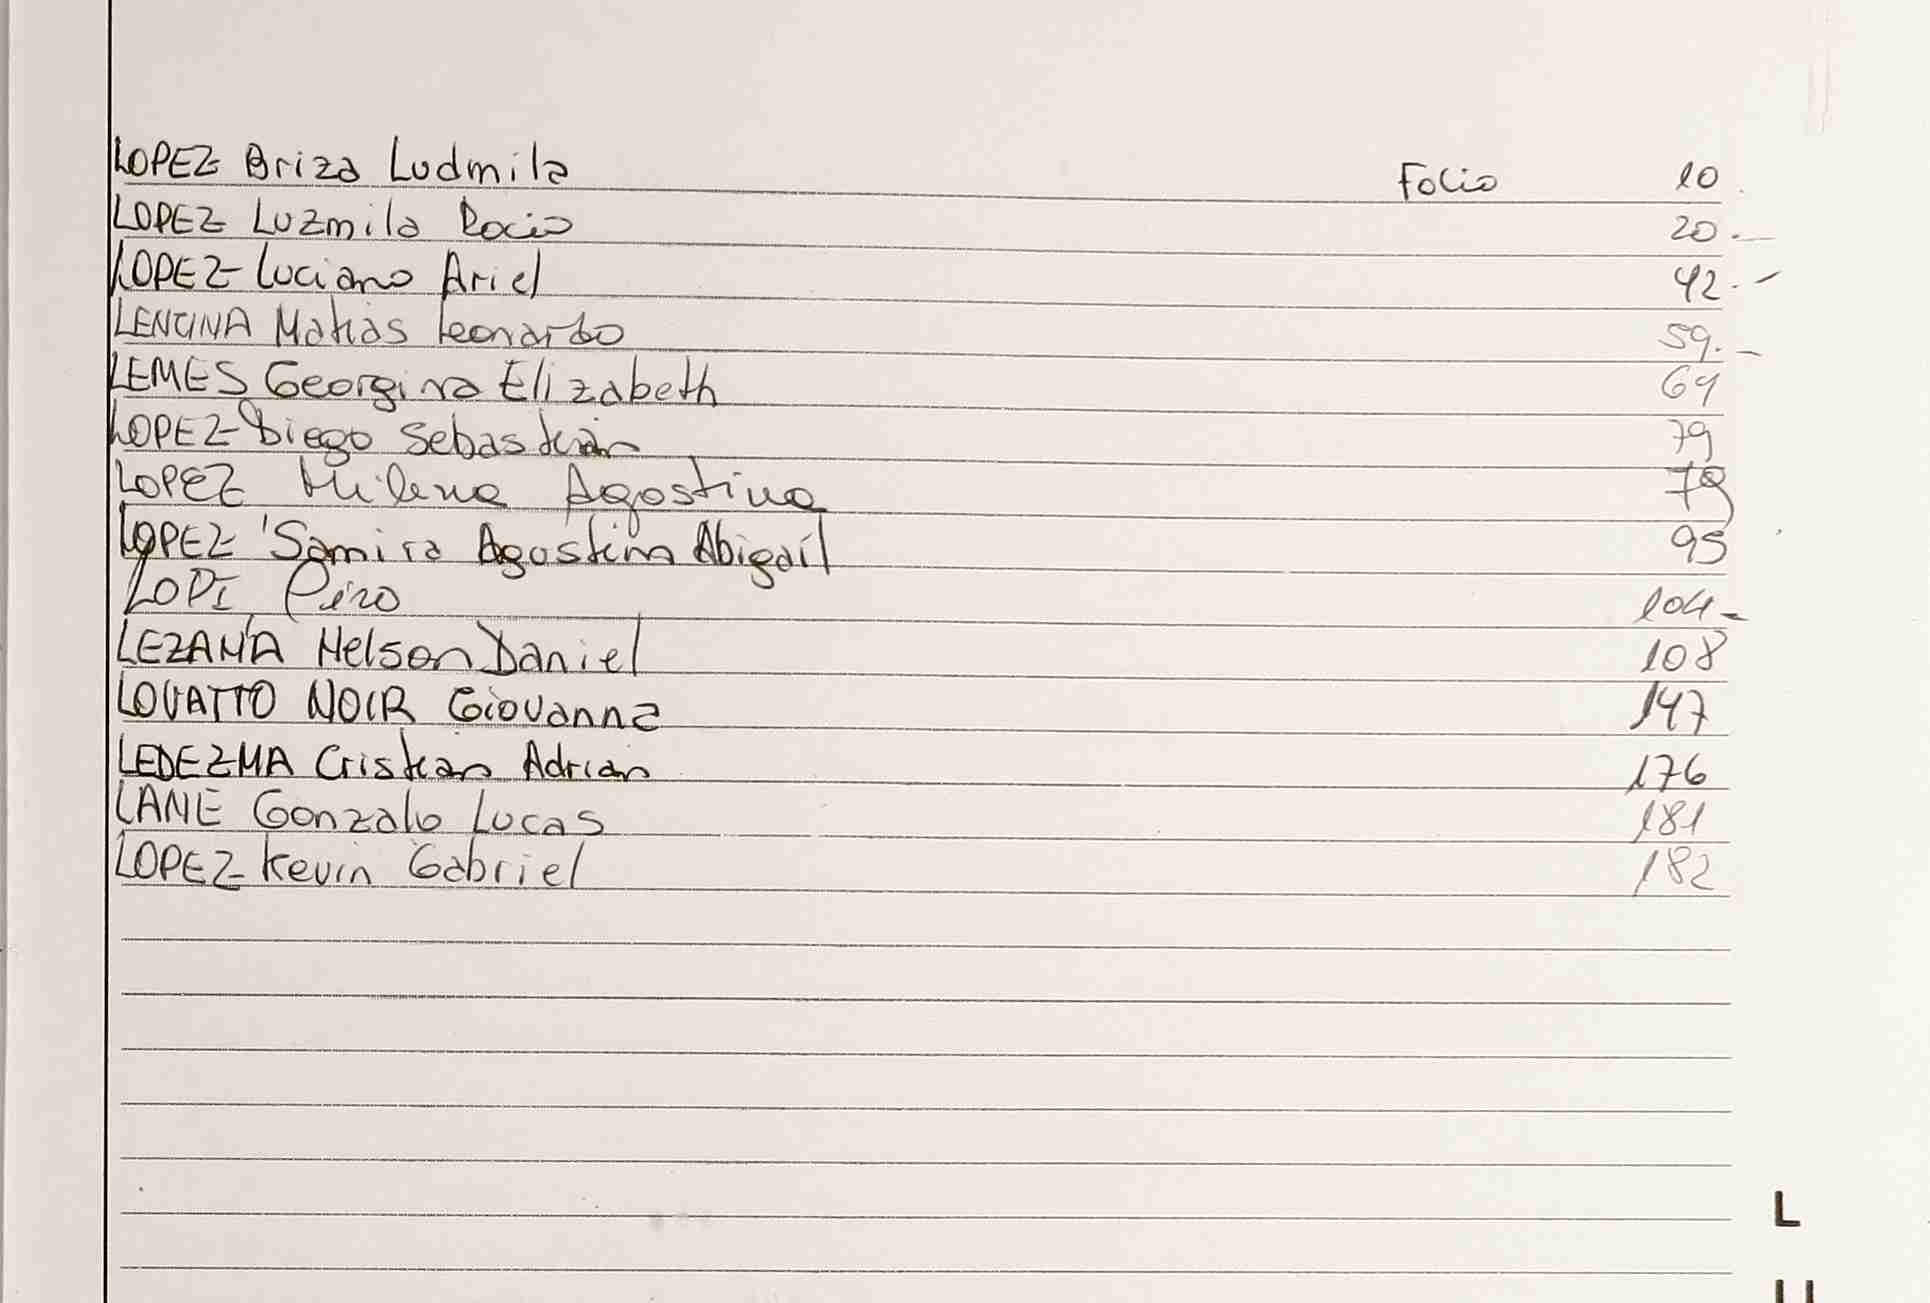 LOPEZ Briza Ludmila Folio 10
LOPEZ Luzmila Rocio 20.-
LOPEZ Luciano Ariel 42.-
LENCINA Matias Leonardo 59.-
LEMES Georgina Elizabeth 69
LOPEZ Diego Sebastián 79
LOPEZ Milena Agostina 79
LOPEZ Samira Agostina Abigaíl 95
LOPI, Piro 104-
LEZAMA Nelson Daniel 108
LOVATTO NOIR Giovanna 147
LEDEZMA Cristian Adrian 176
LANE Gonzalo Lucas 181
LOPEZ Kevin Gabriel 182
L